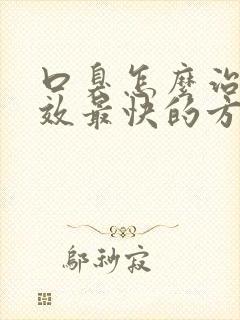 口臭怎麼治
效最快的方
鄔秒寂